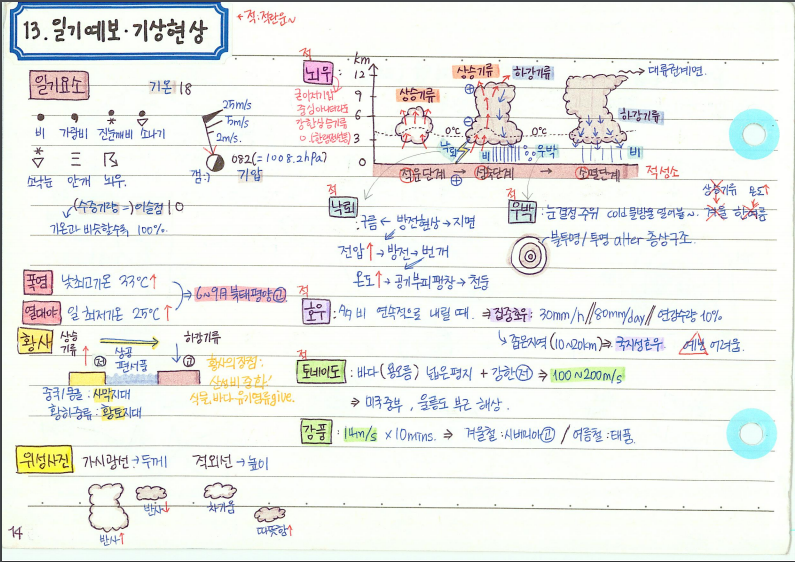 13. 일기예보·기상현상
* 적: 적란운~
일기요소
기온 18
비 가랑비 진눈깨비 소나기
소낙눈 안개 뇌우
25m/s
5m/s
2m/s
082(=1008.2hPa)
기압
(수증기량=)이슬점 10
기온과 비슷할수록 100%.
적
뇌우:
km
12
9
6
3
0
상승기류
상승기류
하강기류
→대류권계면.
하강기류
0℃
0℃
낙뢰
비
우박
비
적운단계 → 성숙단계 → 소멸단계
적
낙뢰
:구름 ← 방전현상 → 지면
전압↑→방전→번개
온도↑→공기부피팽창→천둥
적
우박
:눈결정 주위 cold 물방울 얼어붙~.
상승기류 온도↑
겨울 한여름
불투명/투명 alter 층상구조.
폭염 낮최고기온 33℃↑
열대야 일 최저기온 25℃↑
⇒ 6~9月 북태평양㉠
황사
상승기류
하강기류
저 상공 편서풍 고
중국/몽골: 사막지대
황하중류: 황토지대
황사의 장점:
산성비 중화
식물, 바다-유기염류 give.
적
호우 : 多 비 연속적으로 내릴 때. ⇒ 집중호우: 30mm/h // 80mm/day // 연강수량 10%
좁은지역 (10~20km)⇒ 국지성호우 예보 어려움.
적
토네이도 : 바다(용오름) 넓은평지 + 강한 저 ⇒ 100~200m/s
⇒ 미국중부, 울릉도 부근 해상.
강풍 : 14m/s × 10mins. ⇒ 겨울철: 시베리아 고 / 여름철: 태풍.
위성사진 가시광선→두께 적외선→높이
반사↑
반사↓
차가움
따뜻함↑
14